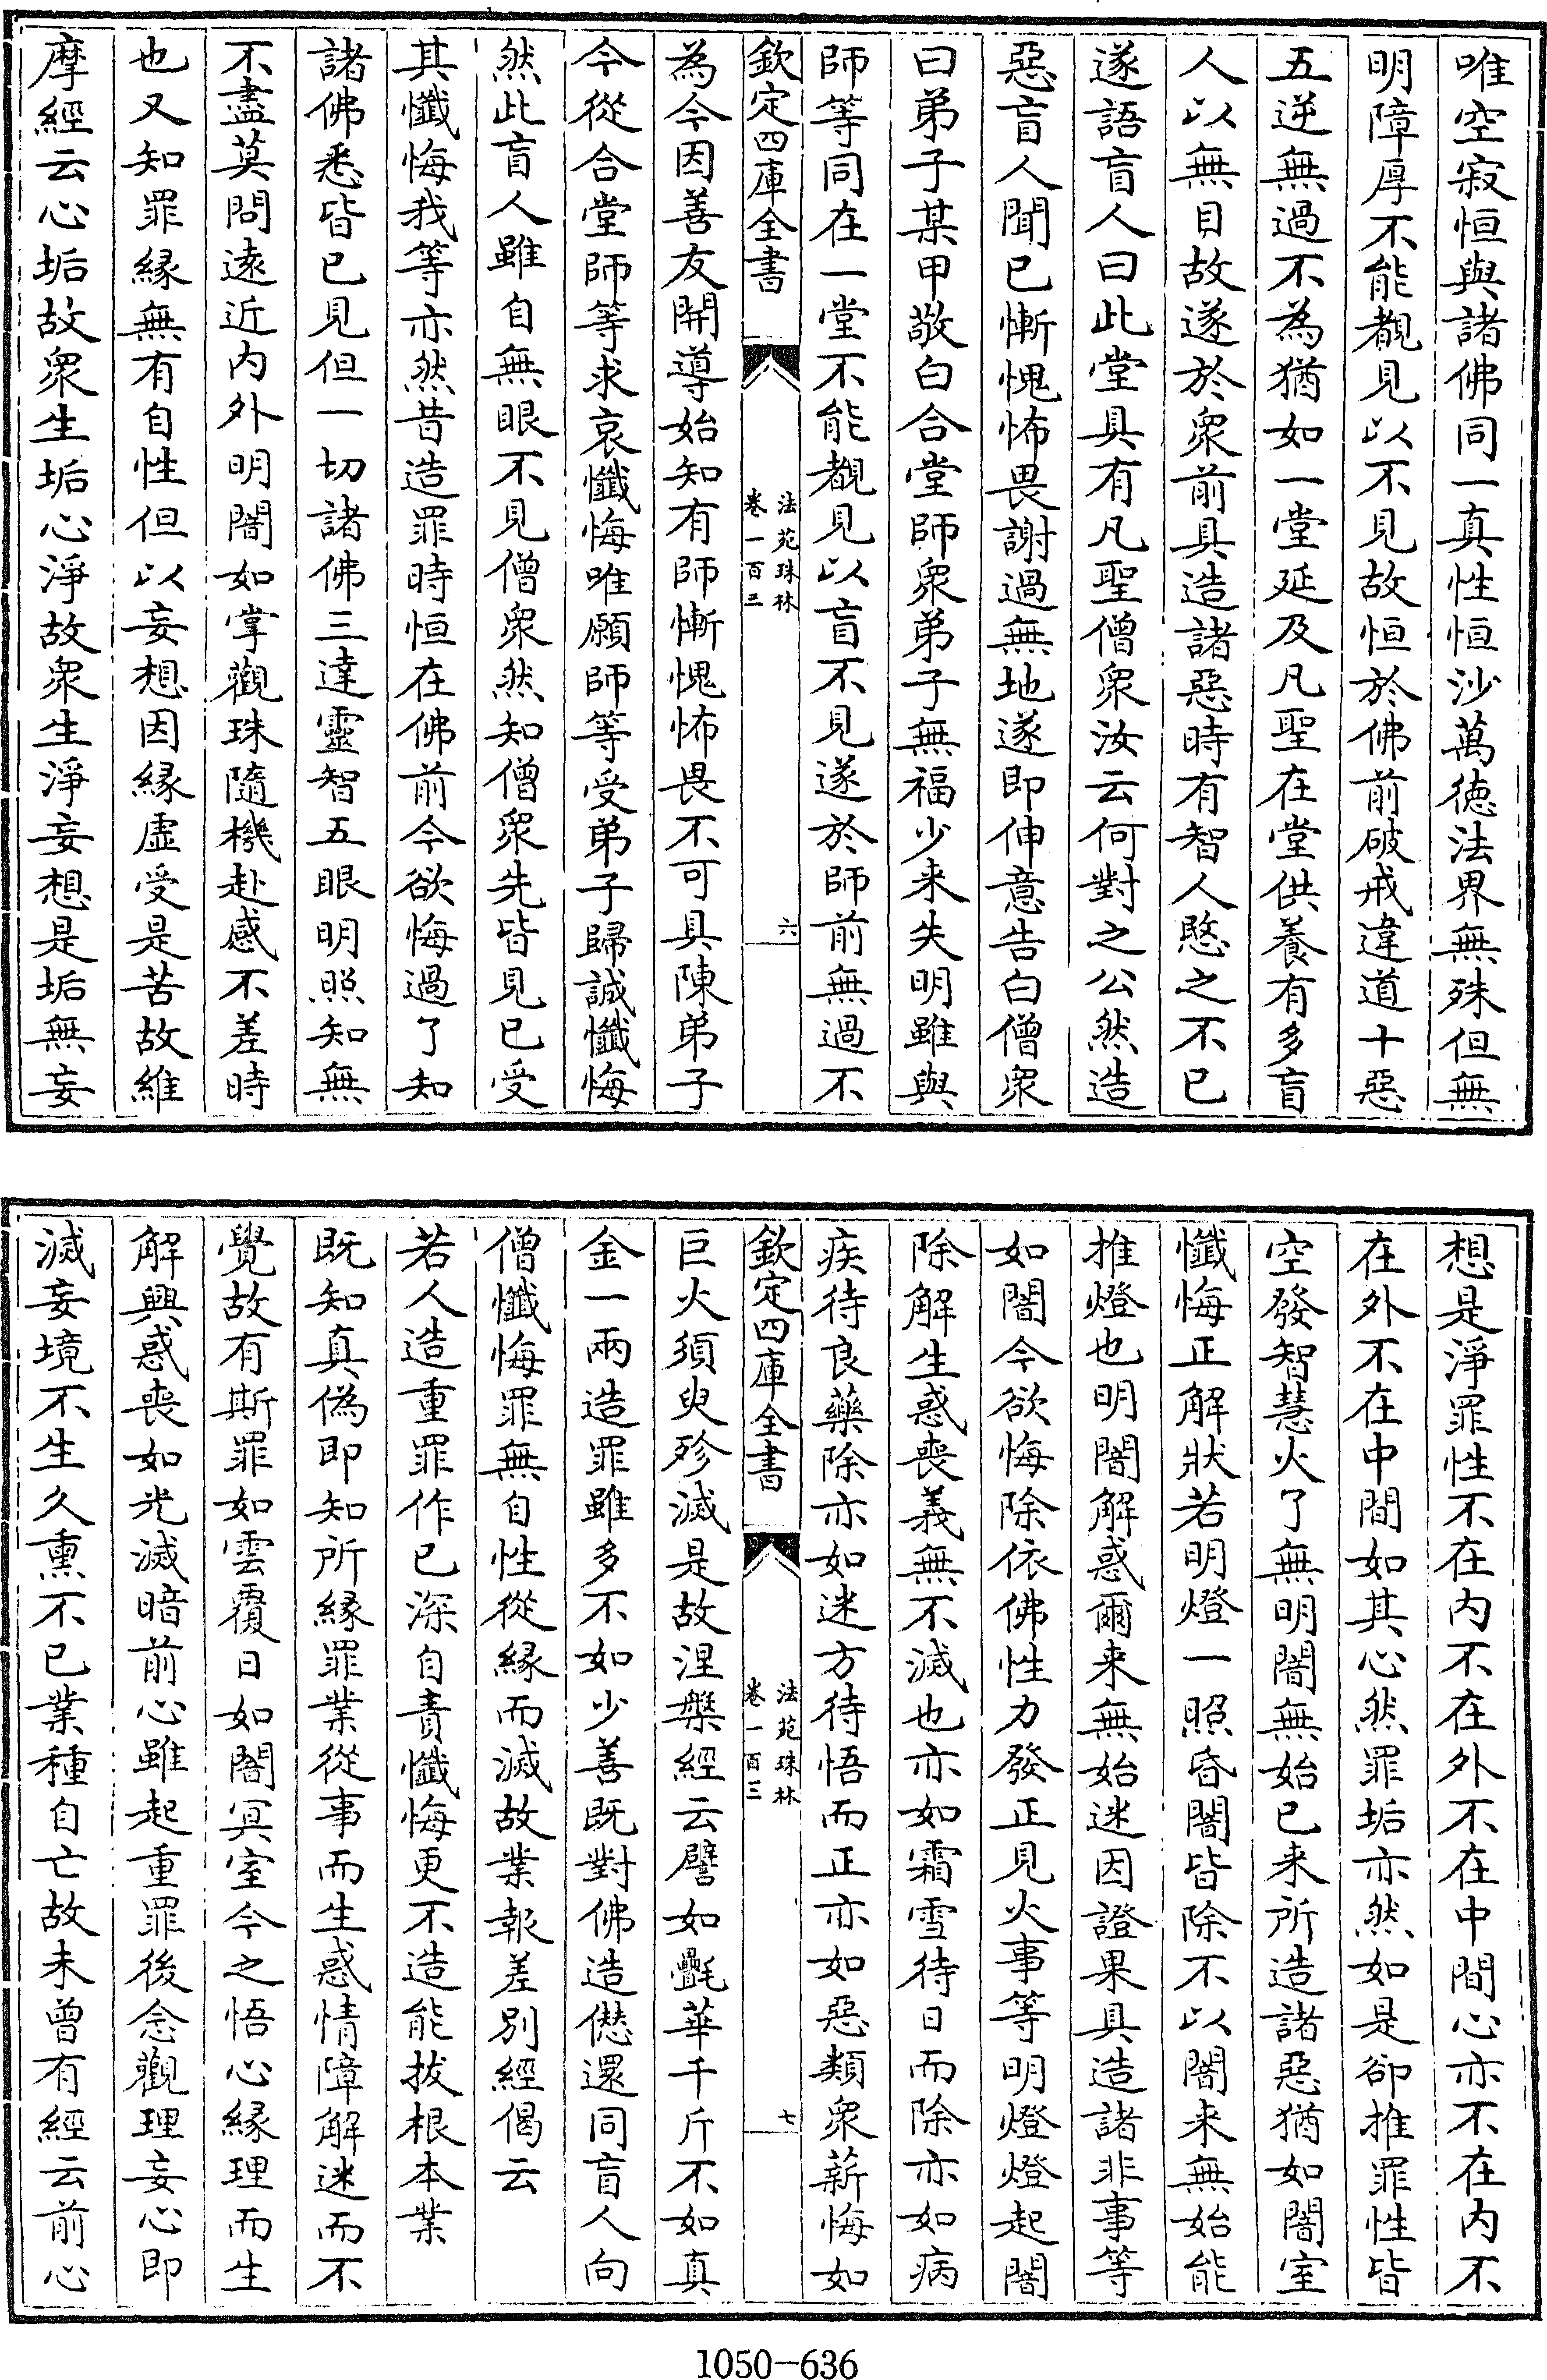 唯空寂恒與諸佛同一真性恒沙萬徳法界無殊但無
明障厚不能覩見以不見故恒於佛前破戒違道十惡
五逆無過不為猶如一堂延及凡聖在堂供養有多盲
人以無目故遂於衆前具造諸惡時有智人愍之不已
遂語盲人曰此堂具有凡聖僧衆汝云何對之公然造
惡盲人聞已慚愧怖畏謝過無地遂即伸意告白僧衆
曰弟子某甲敬白合堂師衆弟子無福少来失明雖與
師等同在一堂不能覩見以盲不見遂於師前無過不
欽定四庫全書
法苑珠林
卷一百三
六
為今因善友開導始知有師慚愧怖畏不可具陳弟子
今從合堂師等求哀懺悔唯願師等受弟子歸誠懺悔
然此盲人雖自無眼不見僧衆然知僧衆先皆見已受
其懺悔我等亦然昔造罪時恒在佛前今欲悔過了知
諸佛悉皆已見但一切諸佛三達靈智五眼明照知無
不盡莫問遠近内外明闇如掌觀珠隨機赴感不差時
也又知罪縁無有自性但以妄想因縁虛受是苦故維
摩經云心垢故衆生垢心淨故衆生淨妄想是垢無妄
想是淨罪性不在内不在外不在中間心亦不在内不
在外不在中間如其心然罪垢亦然如是卻推罪性皆
空發智慧火了無明闇無始已来所造諸惡猶如闇室
懺悔正解狀若明燈一照昏闇皆除不以闇来無始能
推燈也明闇解惑爾来無始迷因證果具造諸非事等
如闇今欲悔除依佛性力發正見火事等明燈燈起闇
除解生惑喪義無不滅也亦如霜雪待日而除亦如病
疾待良藥除亦如迷方待悟而正亦如惡類衆薪悔如
欽定四庫全書
法苑珠林
卷一百三
七
巨火須臾殄滅是故涅槃經云譬如㲲華千斤不如真
金一兩造罪雖多不如少善既對佛造愆還同盲人向
僧懺悔罪無自性從縁而滅故業報差別經偈云
若人造重罪作已深自責懺悔更不造能拔根本業
既知真偽即知所縁罪業從事而生惑情障解迷而不
覺故有斯罪如雲覆日如闇冥室今之悟心縁理而生
解興惑喪如光滅暗前心雖起重罪後念觀理妄心即
滅妄境不生久熏不已業種自亡故未曾有經云前心
1050-636